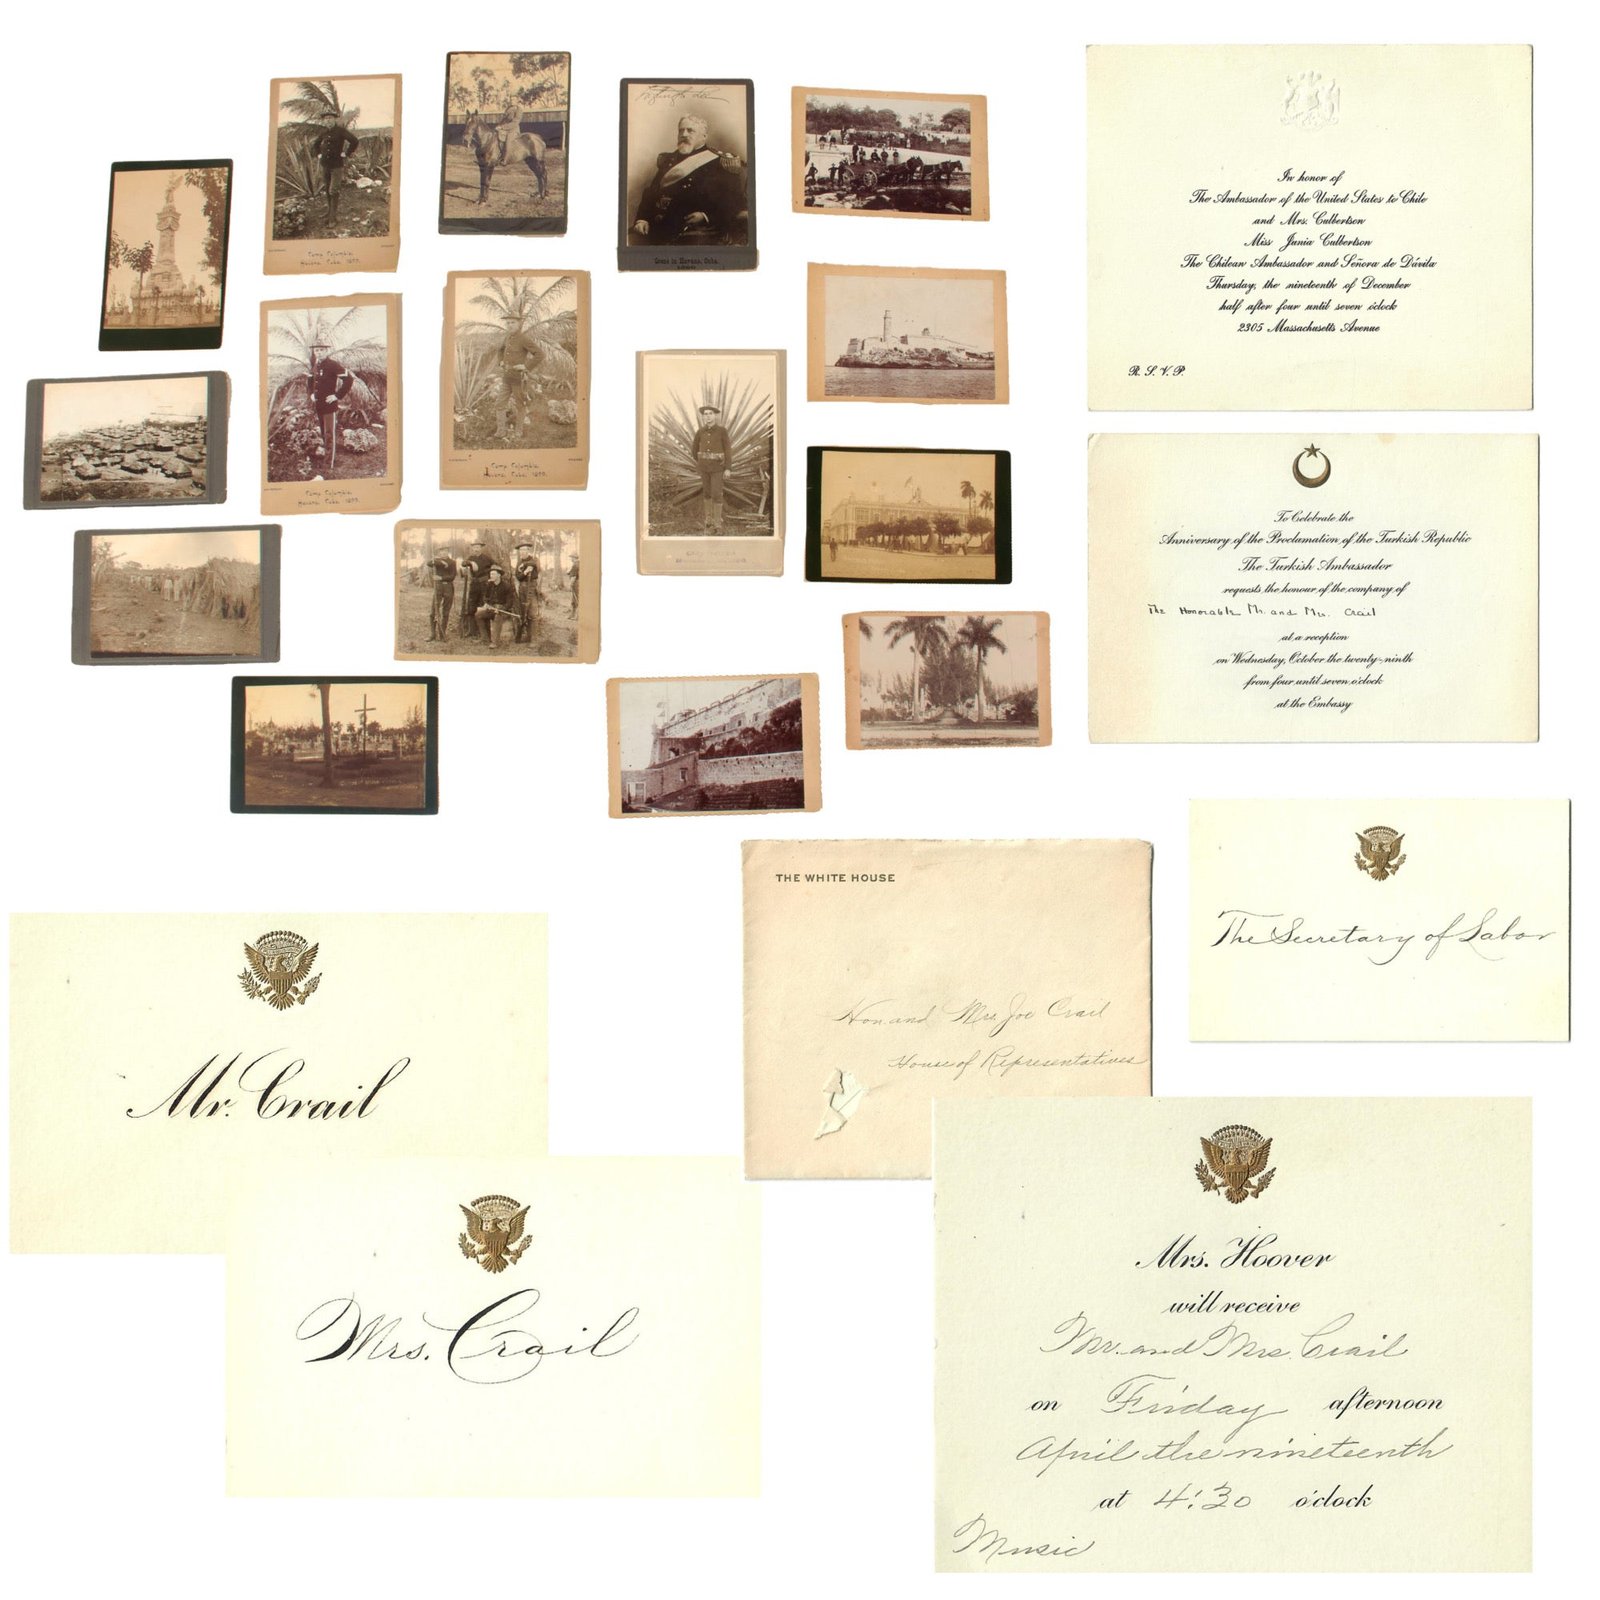 Camp Columbia,
Havana, Cuba, 1899.
Camp Columbia,
Havana, Cuba, 1899.
Camp Columbia,
Havana, Cuba, 1899.
Havana, Cuba,
In honor of
The Ambassador of the United States to Chile
and Mrs. Culbertson
Miss Junia Culbertson
The Chilean Ambassador and Señora de Dávila
Thursday, the nineteenth of December
half after four until seven o'clock
2305 Massachusetts Avenue
R. S. V. P.
To Celebrate the
Anniversary of the Proclamation of the Turkish Republic
The Turkish Ambassador
requests the honour of the company of
The Honorable Mr. and Mrs. Crail
at a reception
on Wednesday, October the twenty-ninth
from four until seven o'clock
at the Embassy
The Secretary of Labor
THE WHITE HOUSE
Hon and Mrs. Joe Crail
House of Representatives
Mr. Crail
Mrs. Crail
Mrs. Hoover
will receive
Mr. and Mrs. Crail
on Friday afternoon
April the nineteenth
at 4:30 o'clock
Music